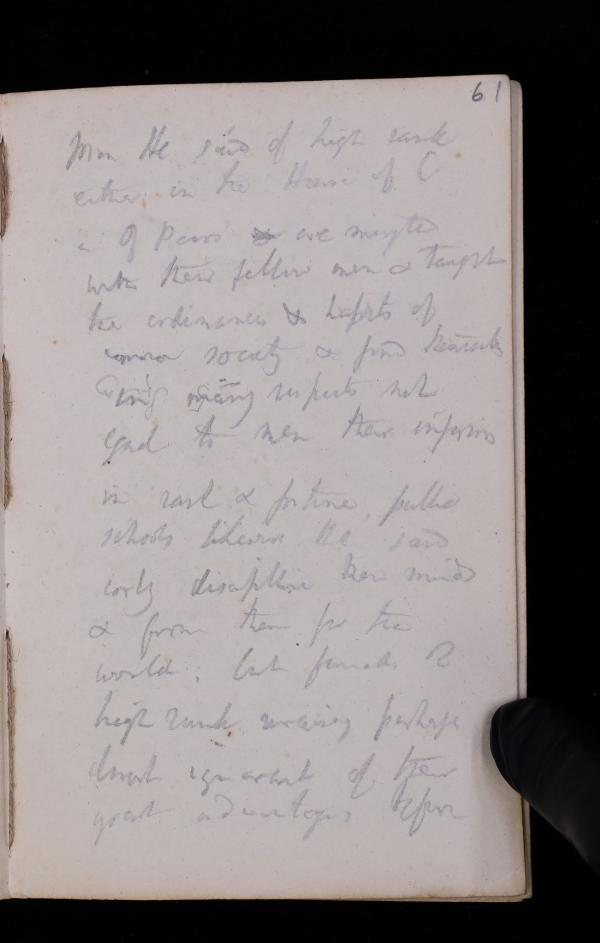 61
Men He said of high rank
either in the House of C
or of Peers are mingled
with their fellow men & taught
the ordinances & habits of
society & find themselves
in many respects not
equal to men their inferiors
in rank & fortune, public
schools likewise He said
early discipline their minds
& form them for the
world; but females of
high rank remaining perhaps
almost ignorant of their
great advantages